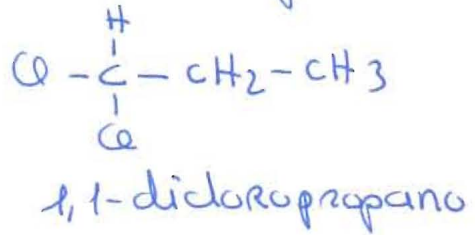 H
Cl - C - CH2 - CH3
Cl
1,1-dicloropropano